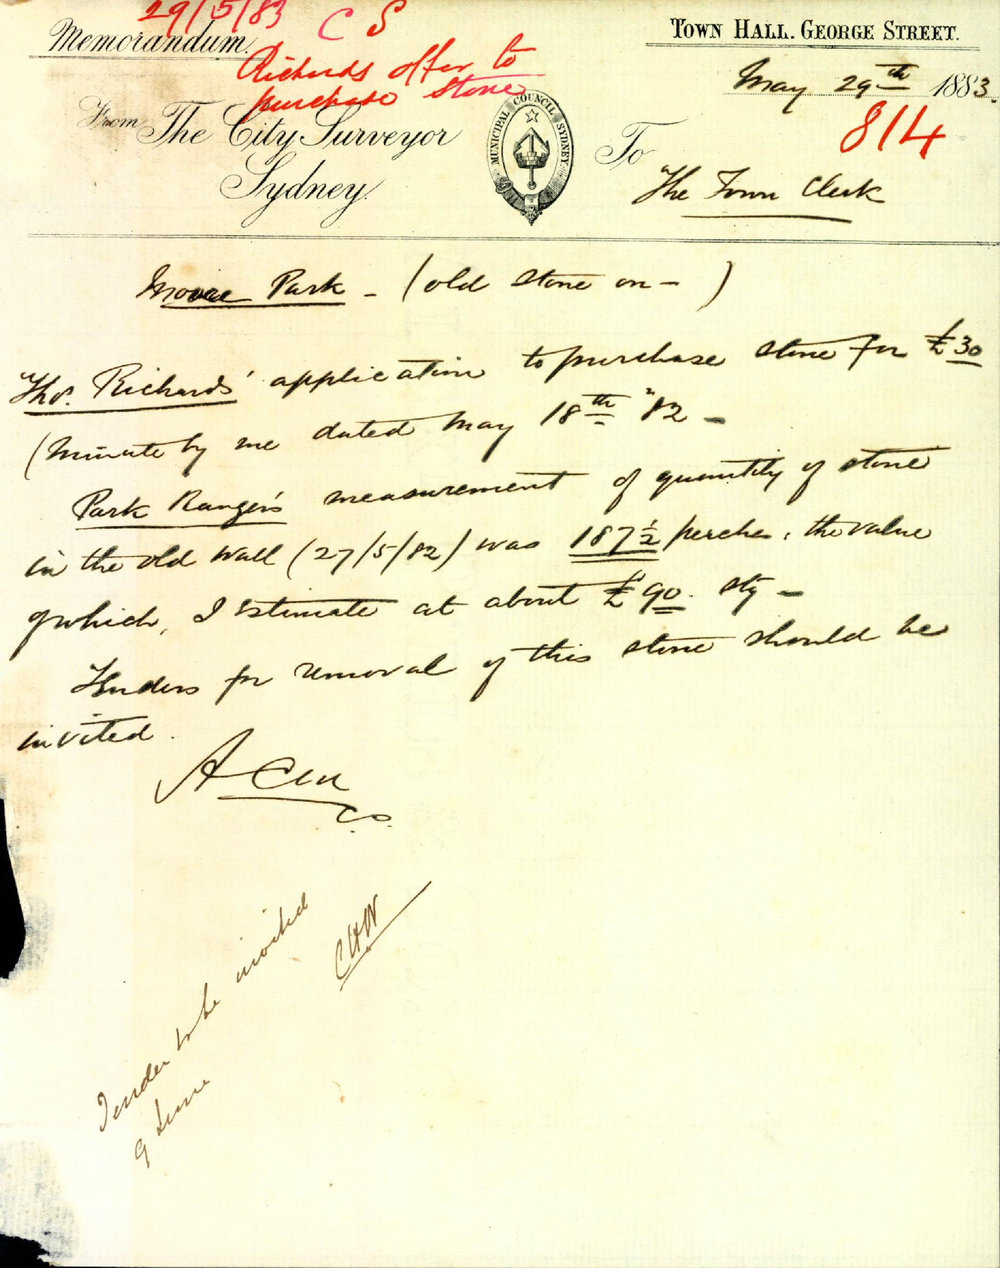 29/5/83 C S
Memorandum.
Richards offer to
purchase Stone
TOWN HALL. GEORGE STREET.
May 29th 1883.
814
From The City Surveyor
Sydney.
MUNICIPAL COUNCIL SYDNEY
To
The Town Clerk
Moore Park - (old stone on - )
Thos. Richards' application to purchase stone for £30
(Minute by me dated May 18th '82 -
Park Ranger's measurement of quantity of stone
in the old wall (27/5/82) was 187½ perches, the value
of which, I Estimate at about £90. stg -
Tenders for removal of this stone should be
invited.
C.S.
Tender to be invited
CHW
9 June